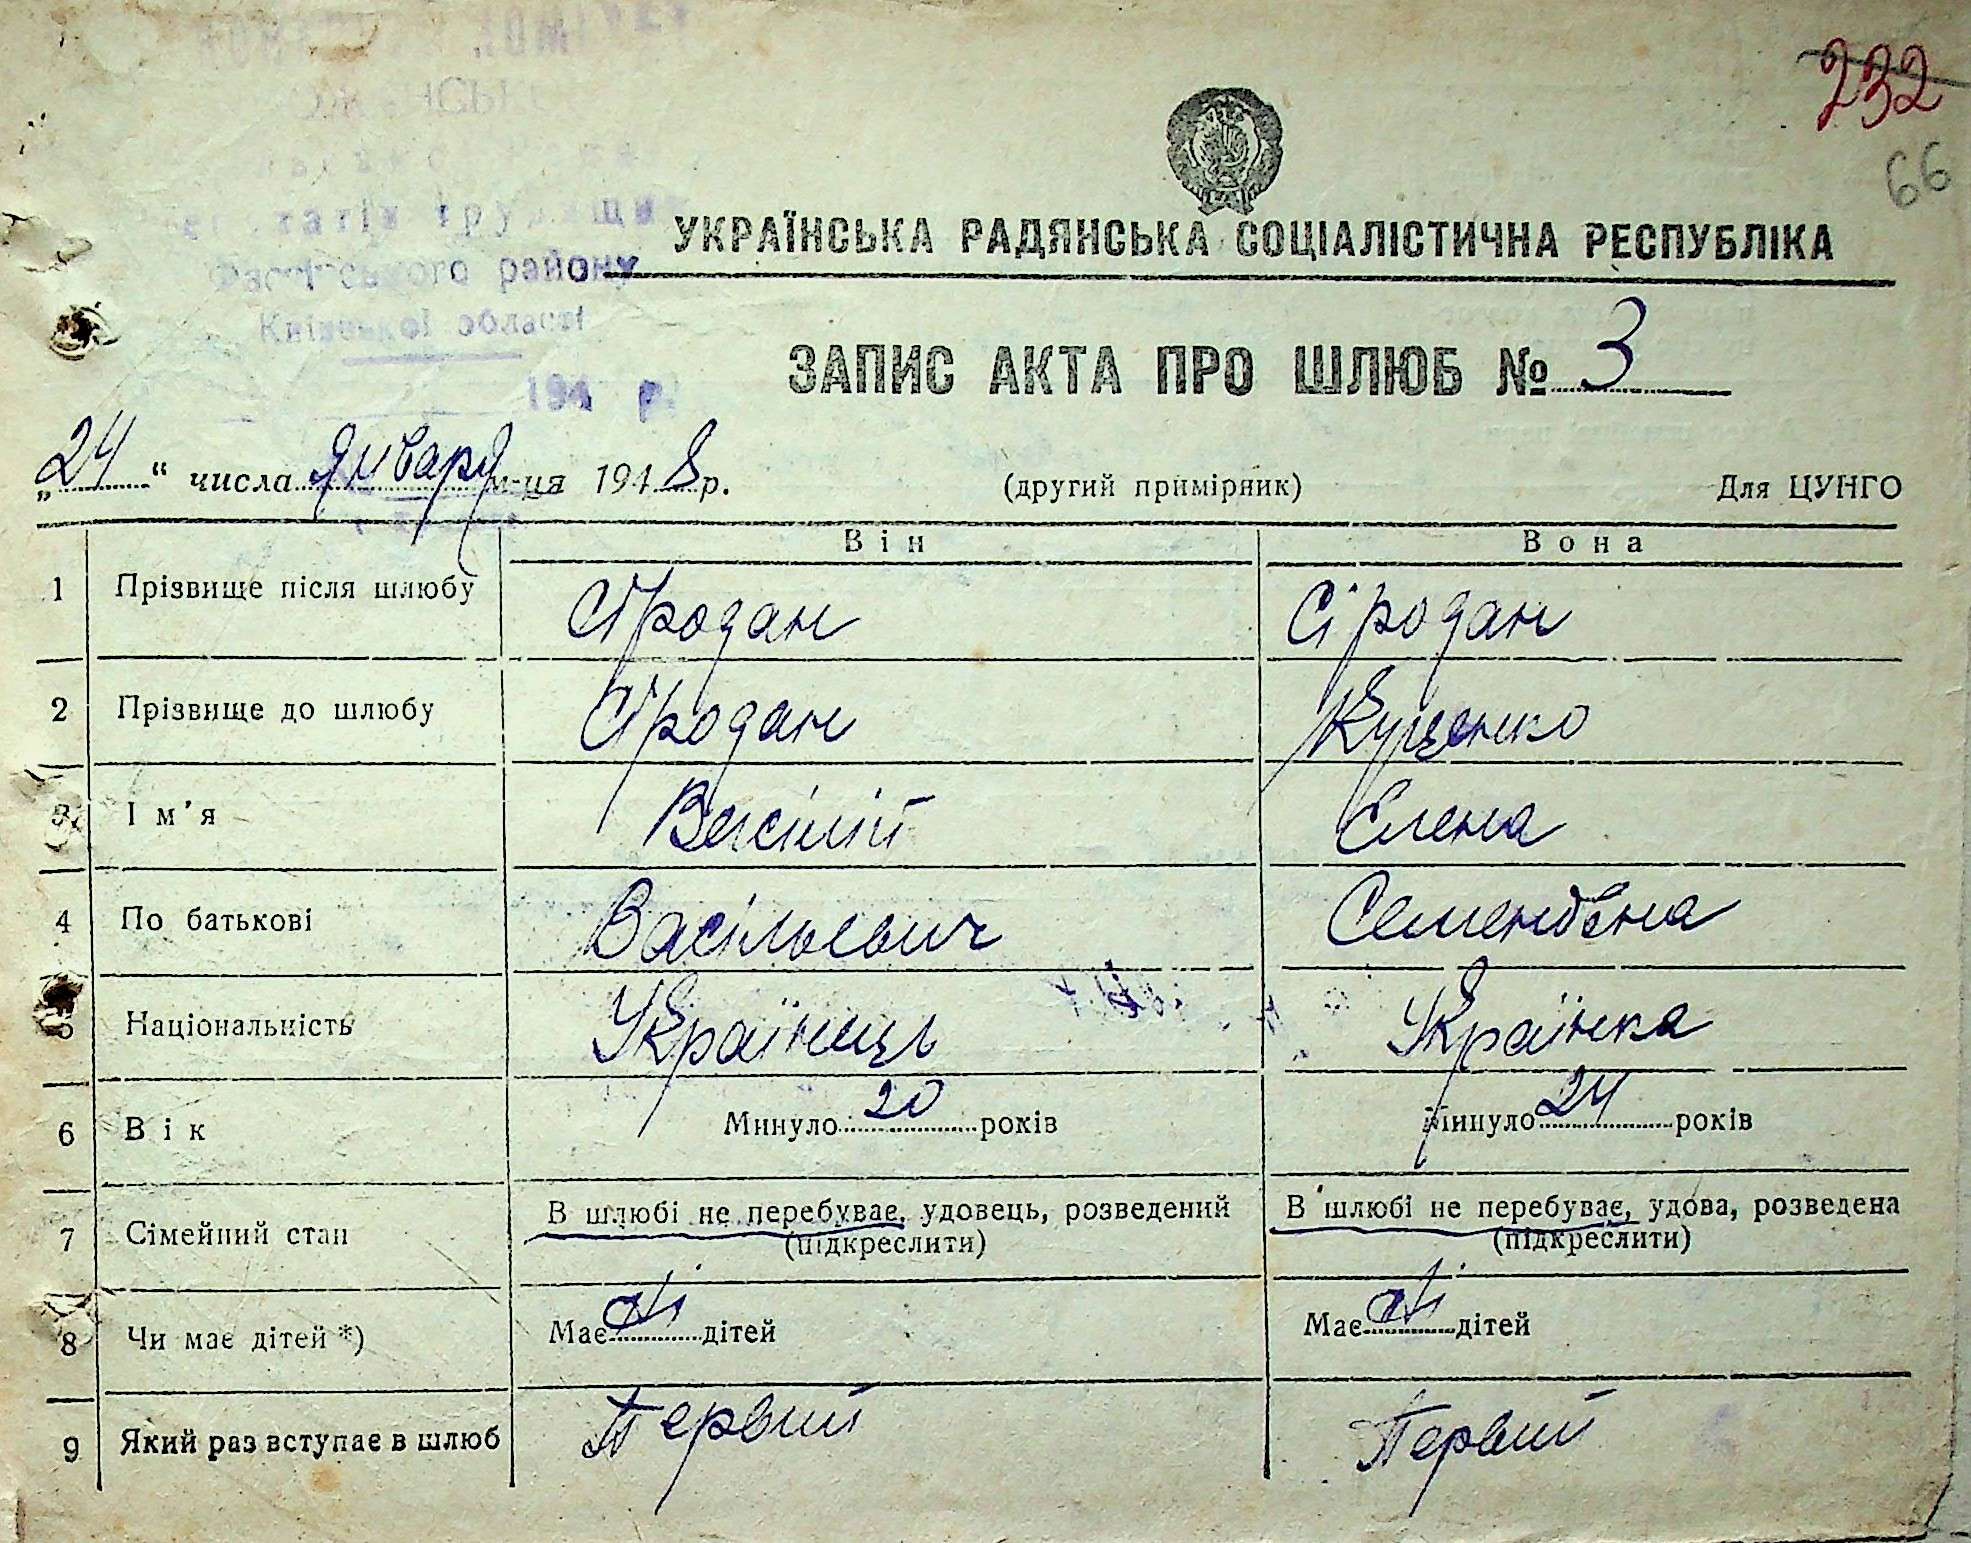 232
66
району
області
194 р.
УКРАЇНСЬКА РАДЯНСЬКА СОЦІАЛІСТИЧНА РЕСПУБЛІКА
ЗАПИС АКТА ПРО ШЛЮБ № 3
„24“ числа января м-ця 1948 р. (другий примірник) Для ЦУНГО
Він Вона
1 Прізвище після шлюбу Сіродан Сіродан
2 Прізвище до шлюбу Сіродан Куценко
3 Ім'я Васілій Єлена
4 По батькові Васільевич Семеновна
5 Національність Українець Українка
6 Вік Минуло 20 років Минуло 24 років
7 Сімейний стан В шлюбі не перебуває, удовець, розведений В шлюбі не перебуває, удова, розведена
(підкреслити) (підкреслити)
8 Чи має дітей *) Має дітей Має дітей
9 Який раз вступає в шлюб Первий Первий